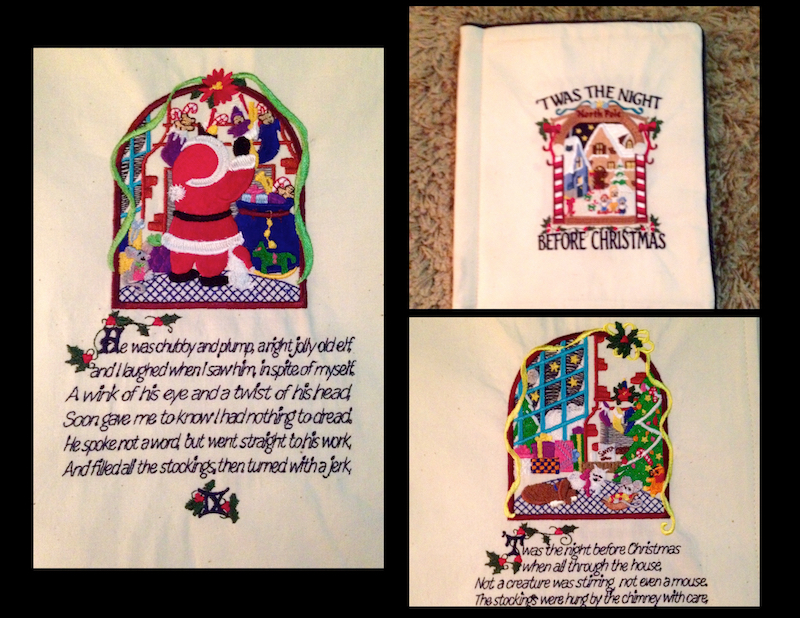 He was chubby and plump, a right jolly old elf,
and I laughed when I saw him, in spite of myself.
A wink of his eye and a twist of his head,
Soon gave me to know I had nothing to dread.
He spoke not a word, but went straight to his work,
And filled all the stockings, then turned with a jerk,
'TWAS THE NIGHT
North Pole
BEFORE CHRISTMAS
Twas the night before Christmas
when all through the house,
Not a creature was stirring, not even a mouse.
The stockings were hung by the chimney with care,